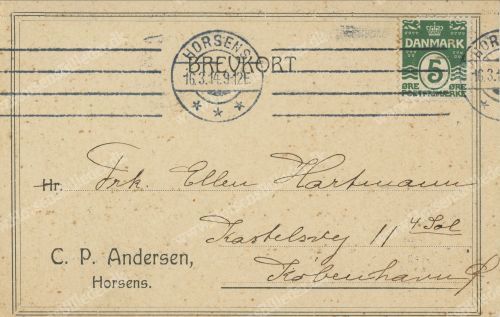 HORSENS
16.3.14. 9-12E.
BREVKORT
DANMARK
5
ØRE ØRE
POSTFRIMÆRKE
Hr. Frk. Ellen Hartmann
Kastelsvej 11 4. Sal
København Ø
C. P. Andersen,
Horsens.